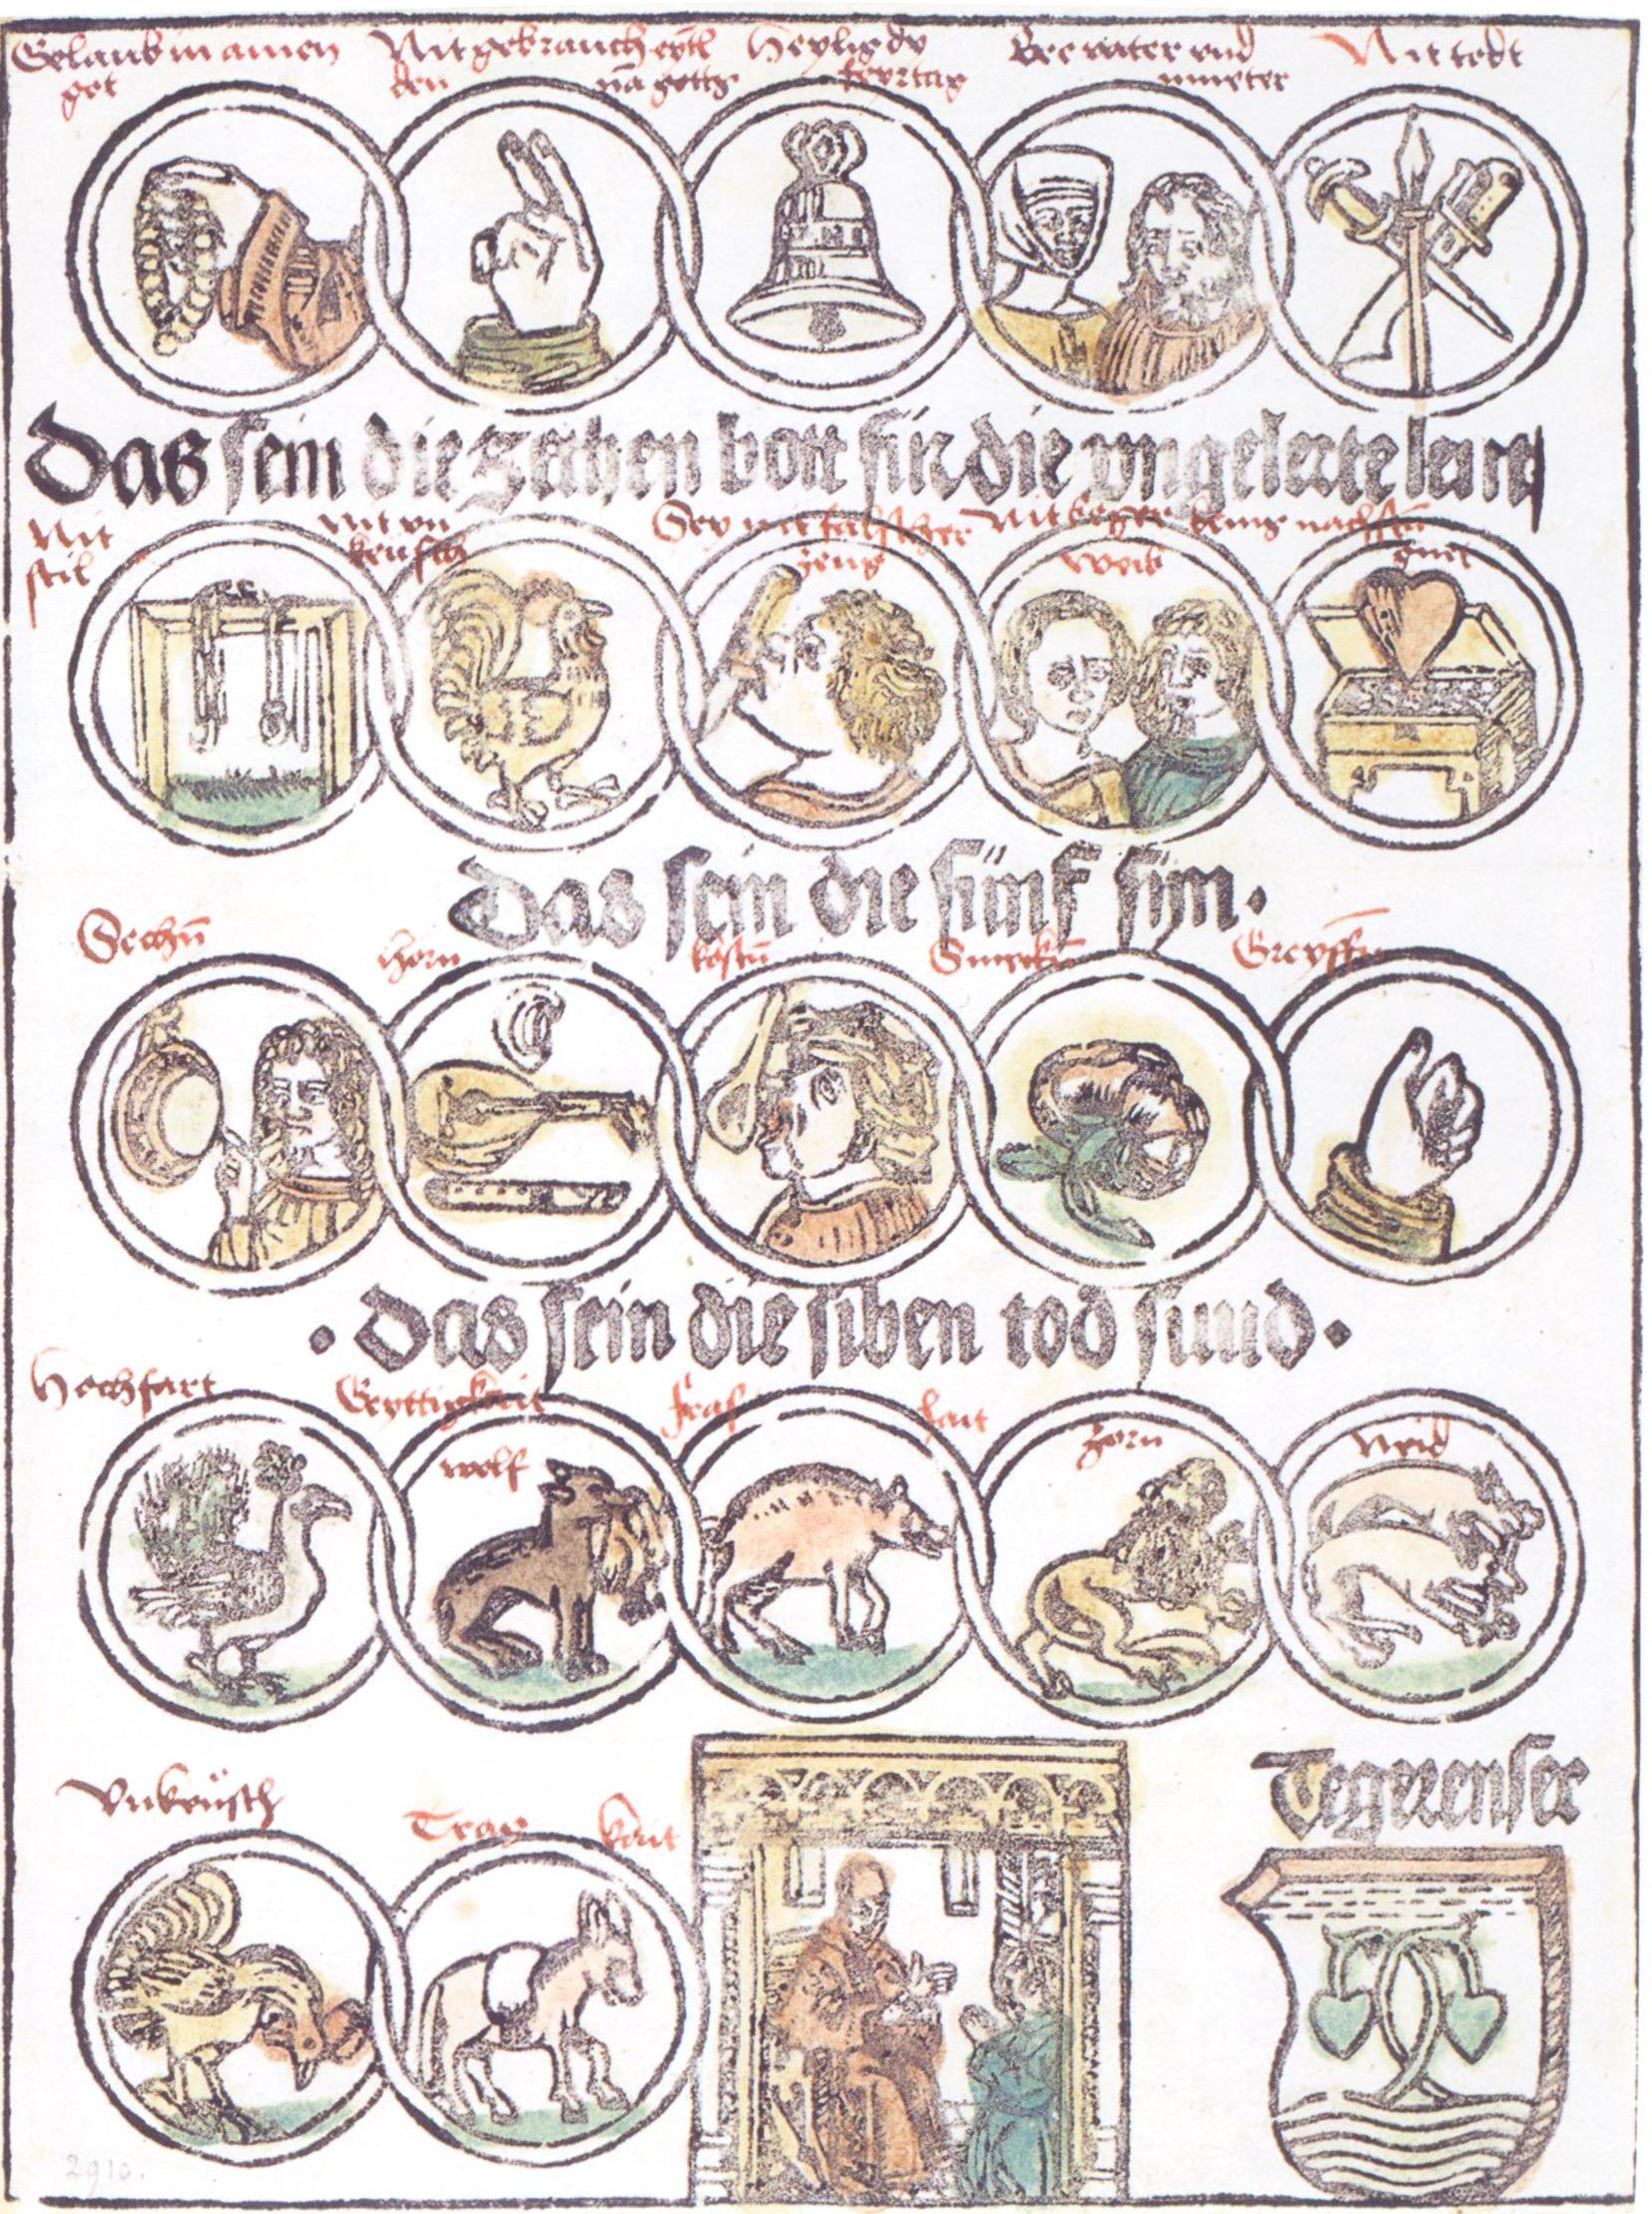 Gelaub in ainen got
Nit gebrauch eytl den nā gottz
Heylig dy feyrtag
Eer vater vnd mueter
Nit tödt
Das sein die zechen bott für die vngelerte leut
Nit stil
Nit vn keüsch
Sey nit falscher zeug
Nit beger deins nachstn̄
weib
guet
Das sein die fünf sÿn.
Sechn̄
Horn
kostn̄
Smeckn̄
Greyffn
. Das sein die siben tod sünd .
Hochfart
Geyttigkeit
fras hait
zorn
Neid
wolf
Vnkeüsch
Trag hait
Tegerenser
2910.